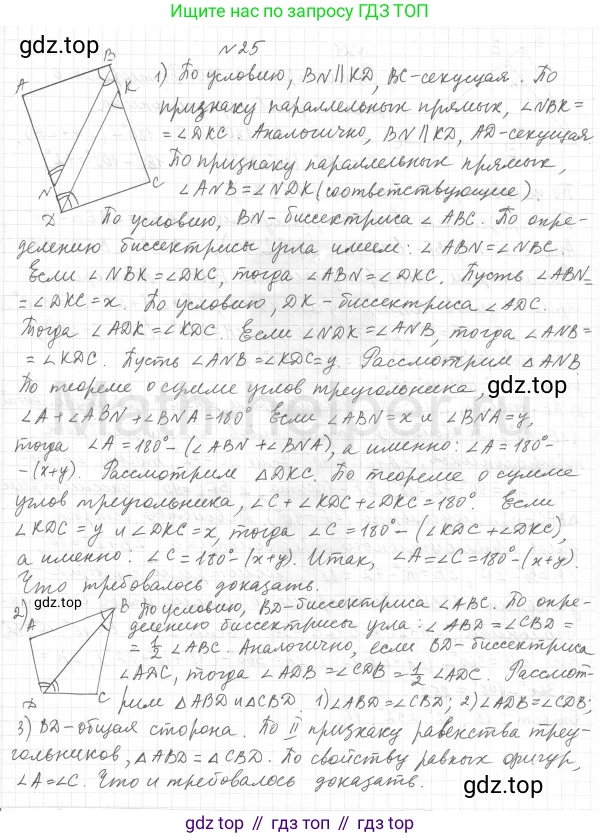 Ищите нас по запросу ГДЗ ТОП
gdz.top
№25
1) По условию, BN∥KD, BC-секущая. По
признаку параллельных прямых, ∠NBK=
=∠DKC. Аналогично, BN∥KD, AD-секущая
По признаку параллельных прямых,
∠ANB=∠NDK (соответствующие).
A
B
K
N
C
D
По условию, BN-биссектриса ∠ABC. По опре-
делению биссектрисы угла имеем: ∠ABN=∠NBC.
Если ∠NBK=∠DKC, тогда ∠ABN=∠DKC. Пусть ∠ABN=
=∠DKC=x. По условию, DK-биссектриса ∠ADC.
Тогда ∠ADK=∠KDC. Если ∠NDK=∠ANB, тогда ∠ANB=
=∠KDC. Пусть ∠ANB=∠KDC=y. Рассмотрим △ANB.
gdz.top
По теореме о сумме углов треугольника,
∠A+∠ABN+∠BNA=180° Если ∠ABN=x и ∠BNA=y,
тогда ∠A=180°-(∠ABN+∠BNA), а именно: ∠A=180°-
-(x+y). Рассмотрим △DKC. По теореме о сумме
углов треугольника, ∠C+∠KDC+∠DKC=180°. Если
∠KDC=y и ∠DKC=x, тогда ∠C=180°-(∠KDC+∠DKC),
а именно: ∠C=180°-(x+y). Итак, ∠A=∠C=180°-(x+y).
Что требовалось доказать.
gdz.top
2)
A
B
D
C
По условию, BD-биссектриса ∠ABC. По опре-
делению биссектрисы угла: ∠ABD=∠CBD=
=1/2 ∠ABC. Аналогично, если BD-биссектриса
∠ADC, тогда ∠ADB=∠CDB=1/2 ∠ADC. Рассмот-
рим △ABD и △CBD. 1)∠ABD=∠CBD; 2)∠ADB=∠CDB;
3) BD-общая сторона. По II признаку равенства треу-
гольников, △ABD=△CBD. По свойству равных фигур,
∠A=∠C. Что и требовалось доказать.
gdz.top
gdz.top // gdz.top // gdz.top // gdz.top